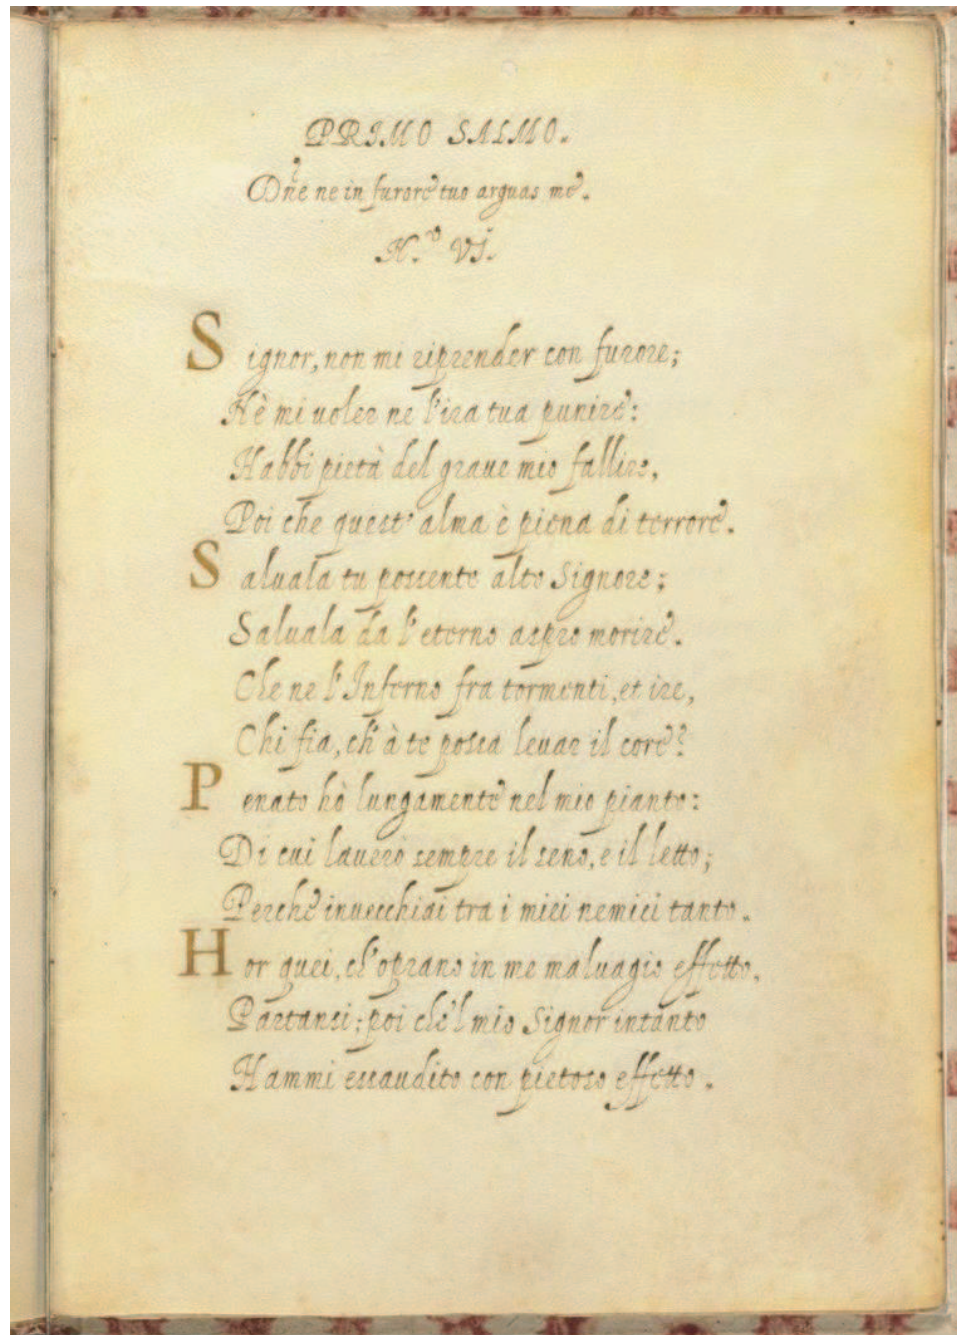 PRIMO SALMO.
Dn̄e ne in furore tuo arguas me.
N.º VI.
Signor, non mi riprender con furore;
Nè mi voler ne l'ira tua punire:
Habbi pietà del graue mio fallire,
Poi che quest' alma è piena di terrore.
Saluala tu possente alto Signore;
Saluala da l'eterno aspro morire.
Che ne l'Inferno fra tormenti, et ire,
Chi fia, ch' à te possa leuar il core?
Penato hò lungamente nel mio pianto:
Di cui lauerò sempre il seno, e il letto;
Perche inuecchiai tra i miei nemici tanto.
Hor quei, ch'oprano in me maluagio effetto,
Partansi; poi che'l mio Signor intanto
Hammi essaudito con pietoso effetto.